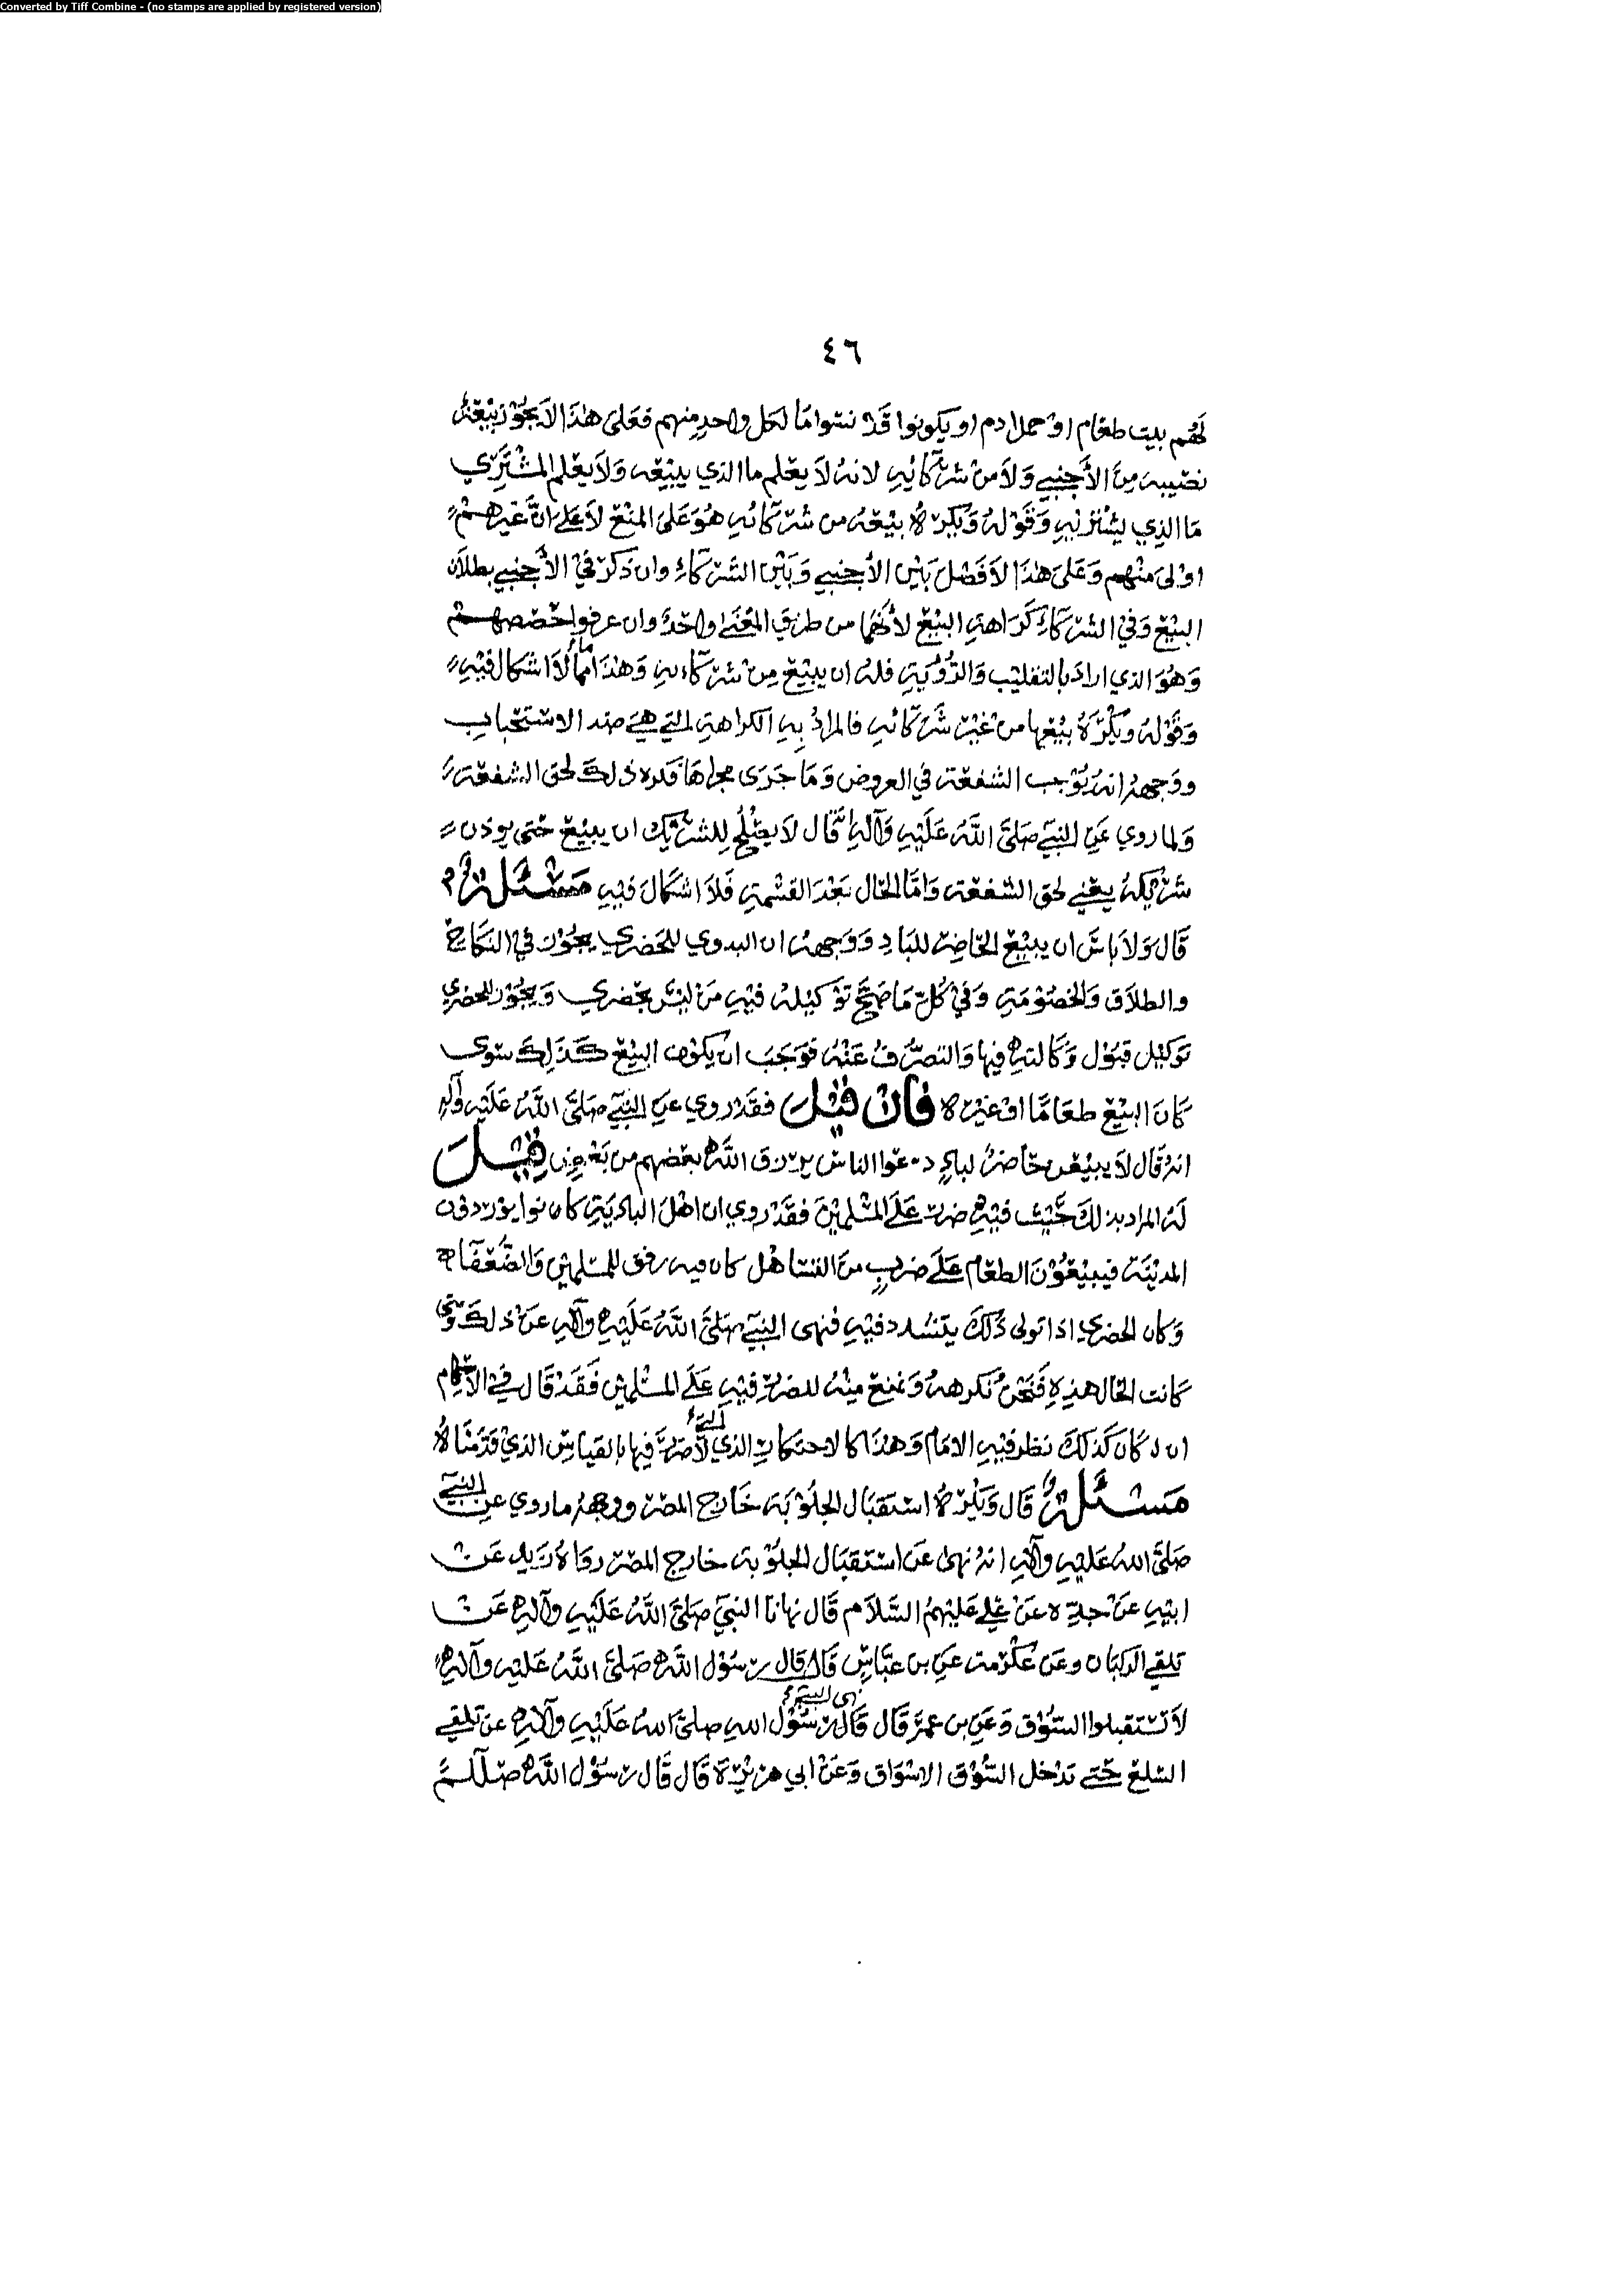 Converted by Tiff Combine - (no stamps are applied by registered version)
٤٦
لهم بيت طعام او حمل ادم او يكونوا قد نسوا ما لكل واحد منهم فعلى هذا لا يجوز بيعه
نصيبه من الأجنبي ولا من شركائه لانه لا يعلم ما الذي يبيعه ولا يعلم المشتري
ما الذي يشتريه وقوله ويكره بيعه من شركائه هو على المنع لا على ان غيرهم
اولى منهم وعلى هذا لا فصل بين الأجنبي وبين الشركاء وان ذكر في الأجنبي بطلان
البيع وفي الشركاء كراهة البيع لأنهما من طريق المعنى واحد وان عرفوا حصصهم
وهو الذي اراد بالتغليب والدوية فله ان يبيع من شركاءه وهذا مما لا اشكال فيه
وقوله ويكره بيعها من غير شركائه فالمراد به الكراهة التي هي ضد الاستحباب
ووجهه انه يوجب الشفعة في العروض وما جرى مجراها فكره ذلك لحق الشفعة
ولما روي عن النبي صلى الله عليه وآله قال لا يصلح للشريك ان يبيع حتى يوذن
شريكه يعني لحق الشفعة واما الحال بعد القسمة فلا اشكال فيه مسئلة
قال ولا باس ان يبيع الحاضر للباد ووجهه ان البدوي للحضري يجوز في النكاح
والطلاق والخصومة وفي كل ما صح توكيله فيه من ليس بحضري ويجوز للحضري
توكيل قبول وكالته فيها والتصرف عنه فوجب ان يكون البيع كذلك سوى
كان البيع طعاما او غيره فان قيل فقد روي عن النبي صلى الله عليه وآله
انه قال لا يبيعن حاضر لباد دعوا الناس يرزق الله بعضهم من بعض قيل
له المراد بذلك حيث فيه ضرر على المسلمين فقد روي ان اهل البادية كانوا يوردون
المدينة فيبيعون الطعام على ضرب من التساهل كان فيه رفق للمسلمين والضعفاء
وكان الحضري اذا تولى ذلك يتشدد فيه فنهى النبي صلى الله عليه وآله عن ذلك ومتى
كانت الحال هذه فنحن نكرهه ونمنع منه للضرر فيه على المسلمين فقد قال في الأحكام
ان كان كذلك نظر فيه الامام وهذا كالاحتكار الذي لا ضرر فيها بالقياس الذي قدمناه
مسئلة قال ويكره استقبال الجلوبة خارج المصر ووجهه ما روي عن النبي
صلى الله عليه وآله انه نهى عن استقبال الجلوبة خارج المصر رواه زيد عن
ابيه عن جده عن علي عليهم السلام قال نهانا النبي صلى الله عليه وآله عن
تلقي الركبان وعن عكرمة عن بن عباس قال قال رسول الله صلى الله عليه وآله
لا تستقبلوا السوق وعن بن عمر قال قال رسول الله صلى الله عليه وآله عن تلقي
السلع حتى تدخل السوق الاسواق وعن ابي هريرة قال قال رسول الله صللم